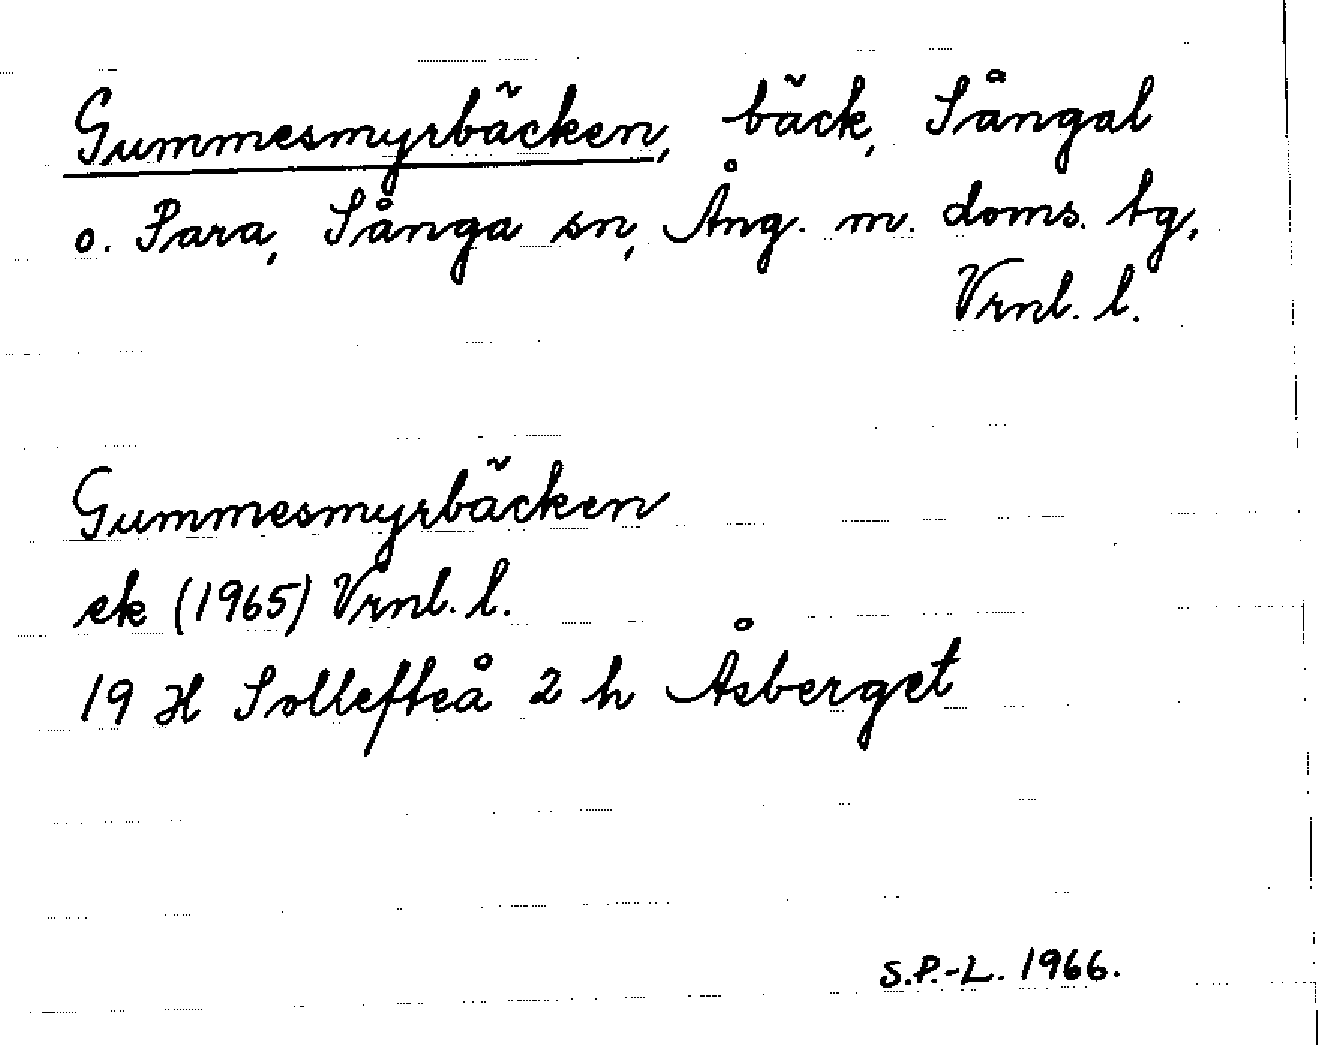 Gummesmyrbäcken, bäck, Sångal
o. Para, Sånga sn, Ång. m. doms. tg,
Vrnl. l.
Gummesmyrbäcken
ek (1965) Vrnl. l.
19 H Sollefteå 2 h Åsberget
S.P.-L. 1966.